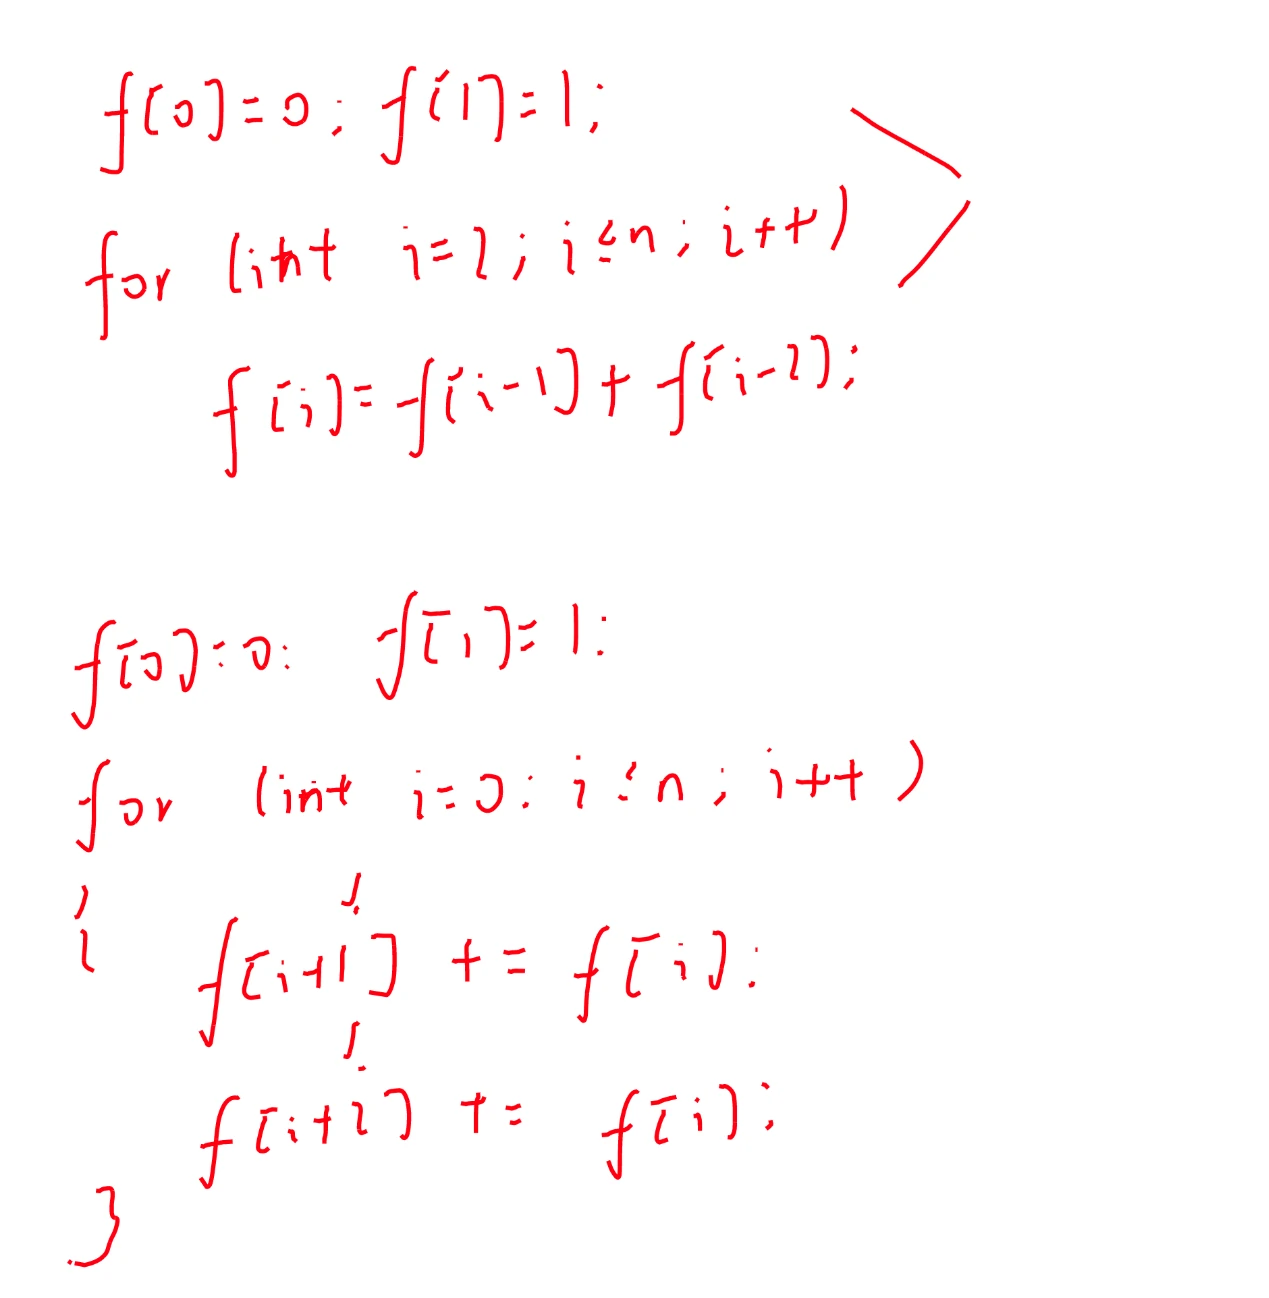 f[0]=0; f[1]=1;
for (int i=2; i≤n; i++)
f[i]=f[i-1]+f[i-2];
f[0]=0; f[1]=1;
for (int i=0; i≤n; i++)
{
!
f[i+1] += f[i];
!
f[i+2] += f[i];
}